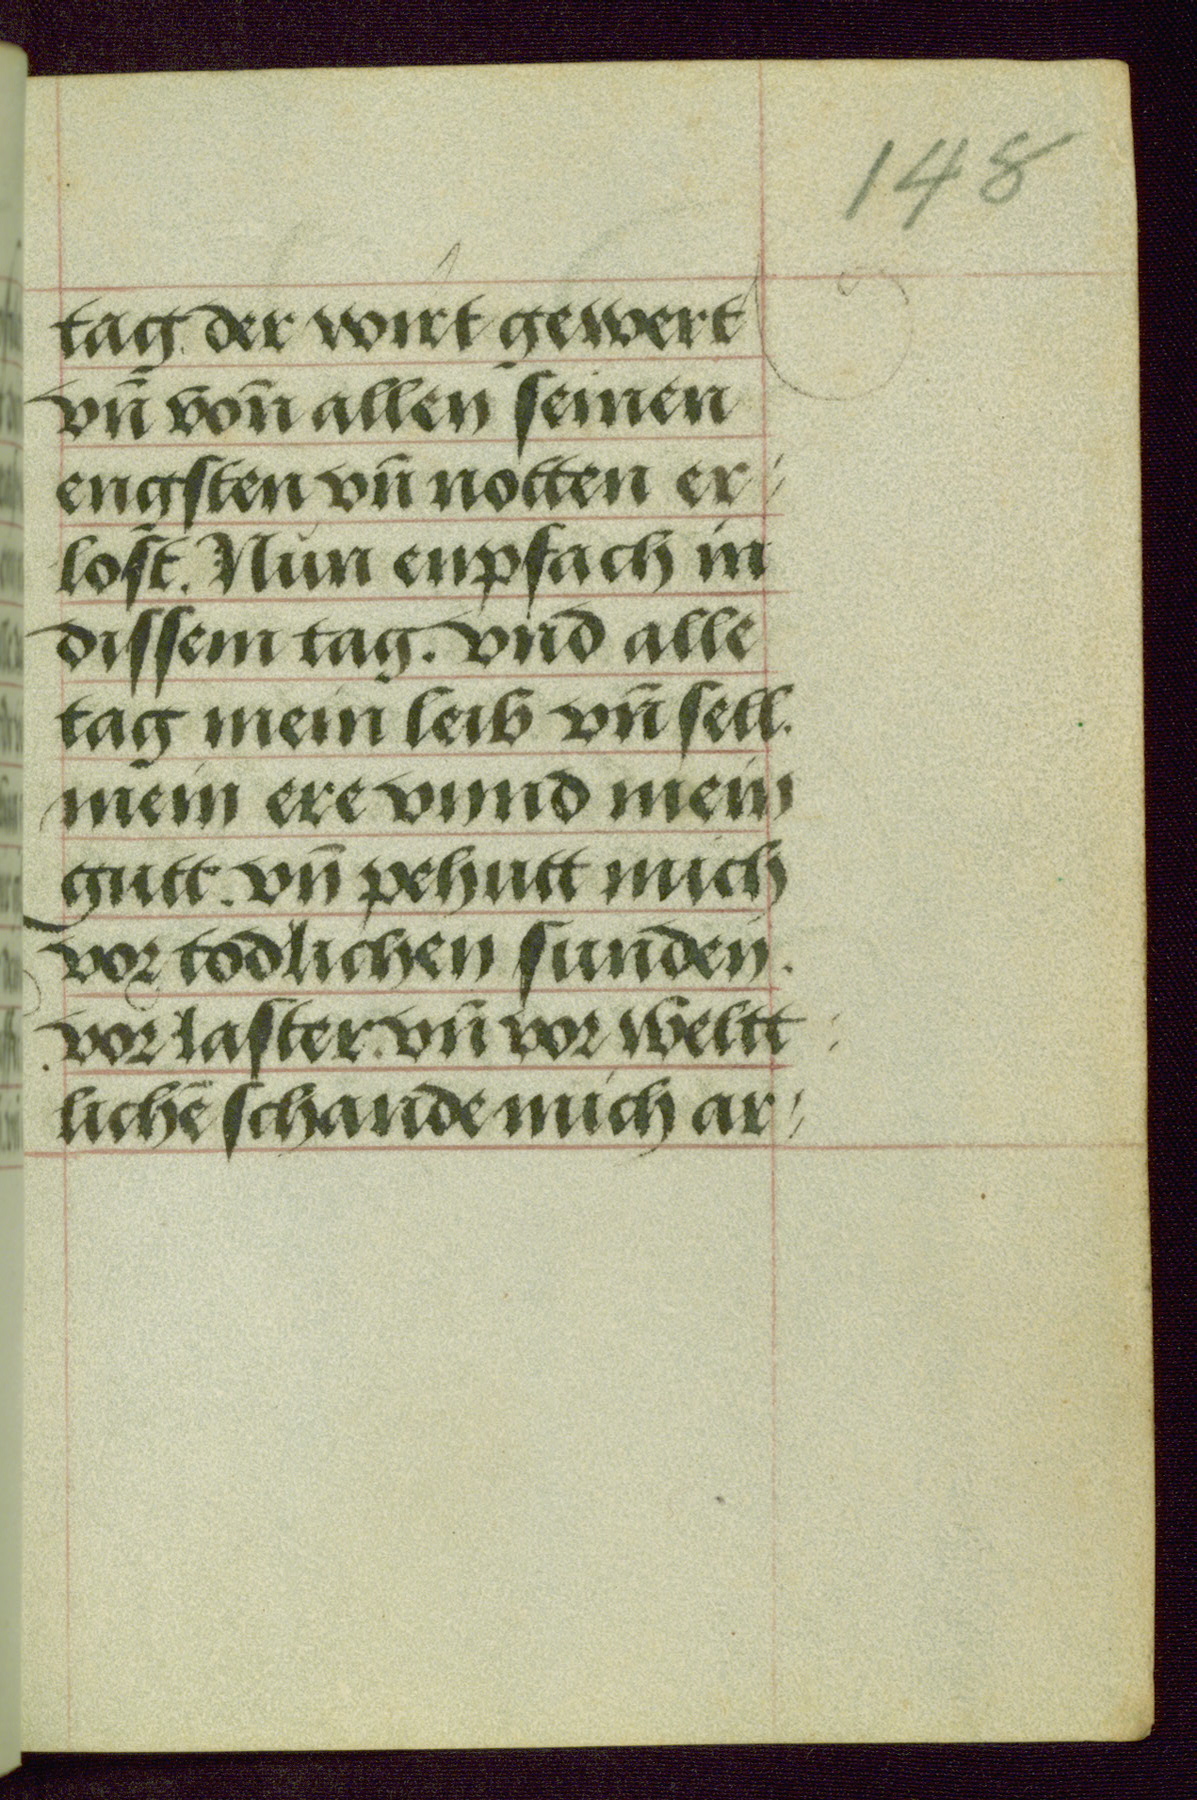 148
tag der wirt gewert
vn̄ von allen seinen
engsten vn̄ notten er⸗
lost. Nun enpfach in
dissem tag. vnd alle
tag mein leib vn̄ sell.
mein ere vnnd mein
gutt. vn̄ pehutt mich
vor todlichen sunden.
vor laster. vn̄ vor weltt⸗
lichē schande mich ar⸗